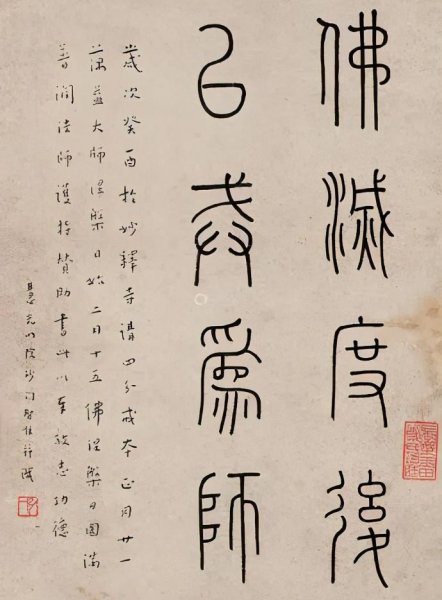 佛滅度後
以戒為師
歲次癸酉於妙釋寺講四分戒本正月廿一
蕅益大師涅槃日始二月十五佛涅槃日圓滿
普潤法師護持贊助書此以奉敬志功德
光明院沙門